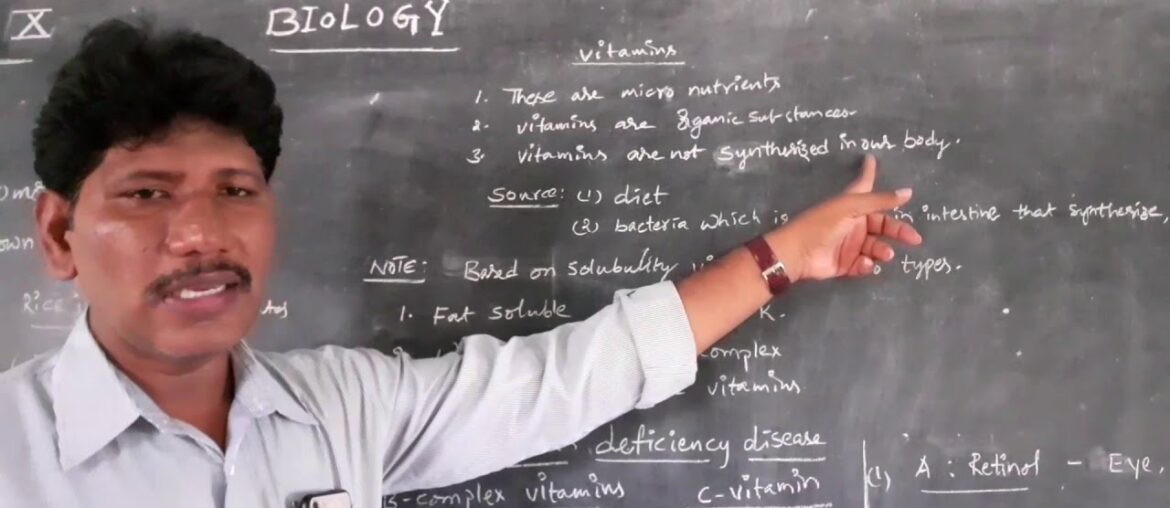 X
BIOLOGY
vitamins
1. These are micro nutrients
2. vitamins are organic substances
3. vitamins are not synthesized in our body.
Source: (1) diet
(2) bacteria which is in intestine that synthesize
NOTE: Based on solubulity types.
1. Fat soluble K.
complex
vitamins
own
RICE
deficiency disease
B-complex vitamins C-vitamin
(1) A: Retinol - Eye,